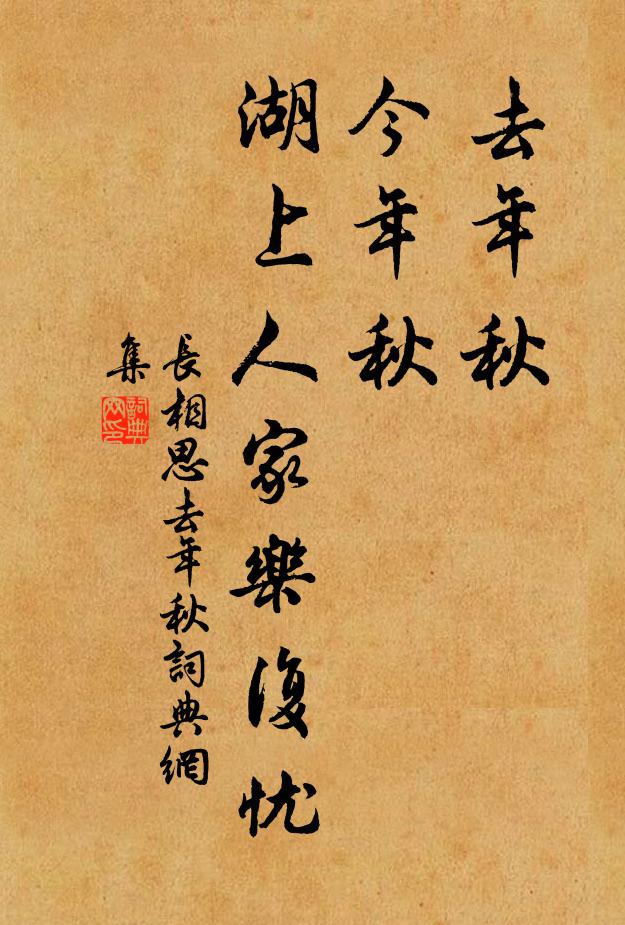 去年秋
今年秋
湖上人家樂復忧
長相思去年秋詞典網
集
詞典
网印